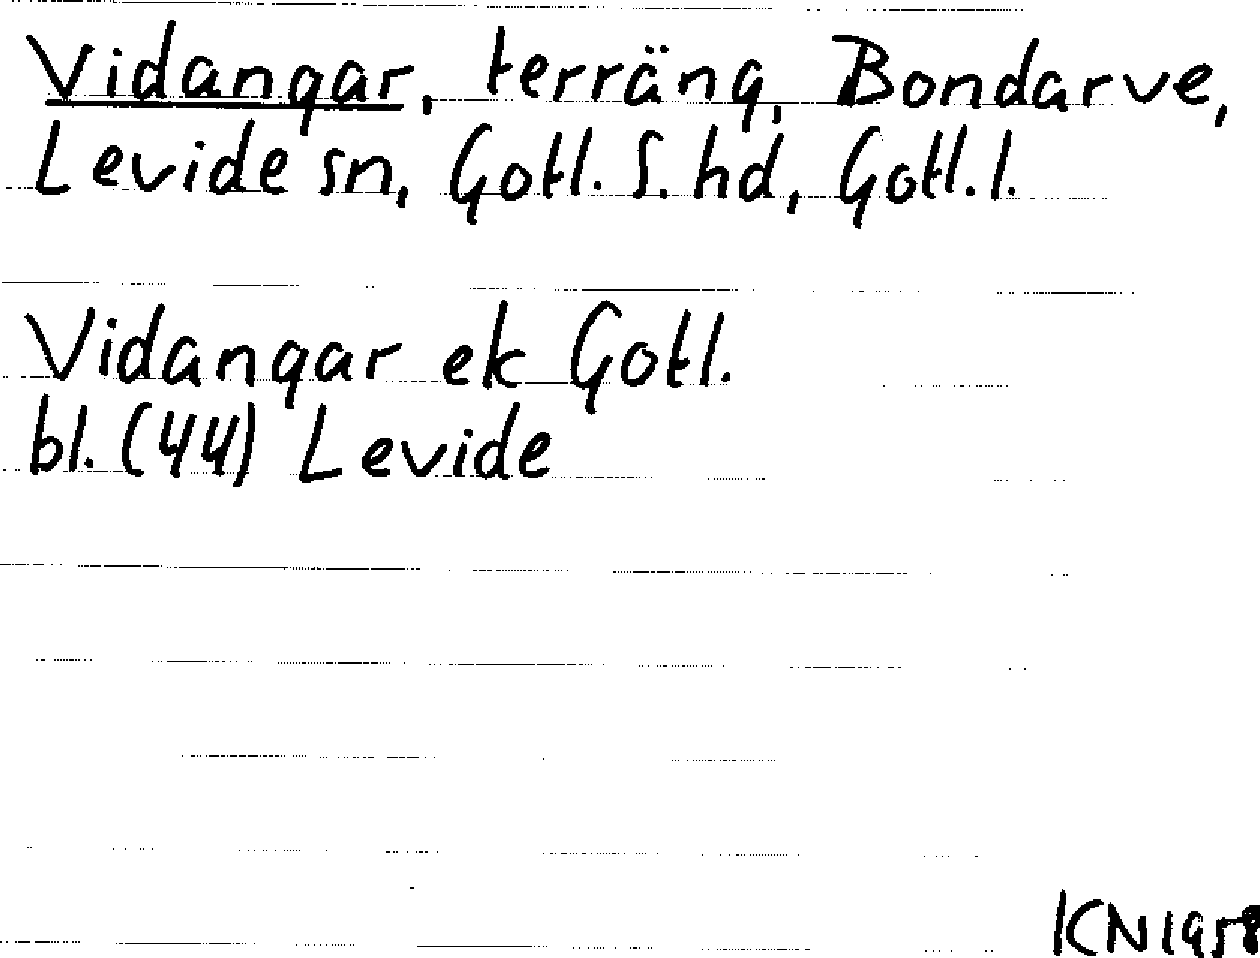 Vidangar, terräng, Bondarve,
Levide sn, Gotl. S. hd, Gotl. l.
Vidangar ek Gotl.
bl. (44) Levide
KN 1958